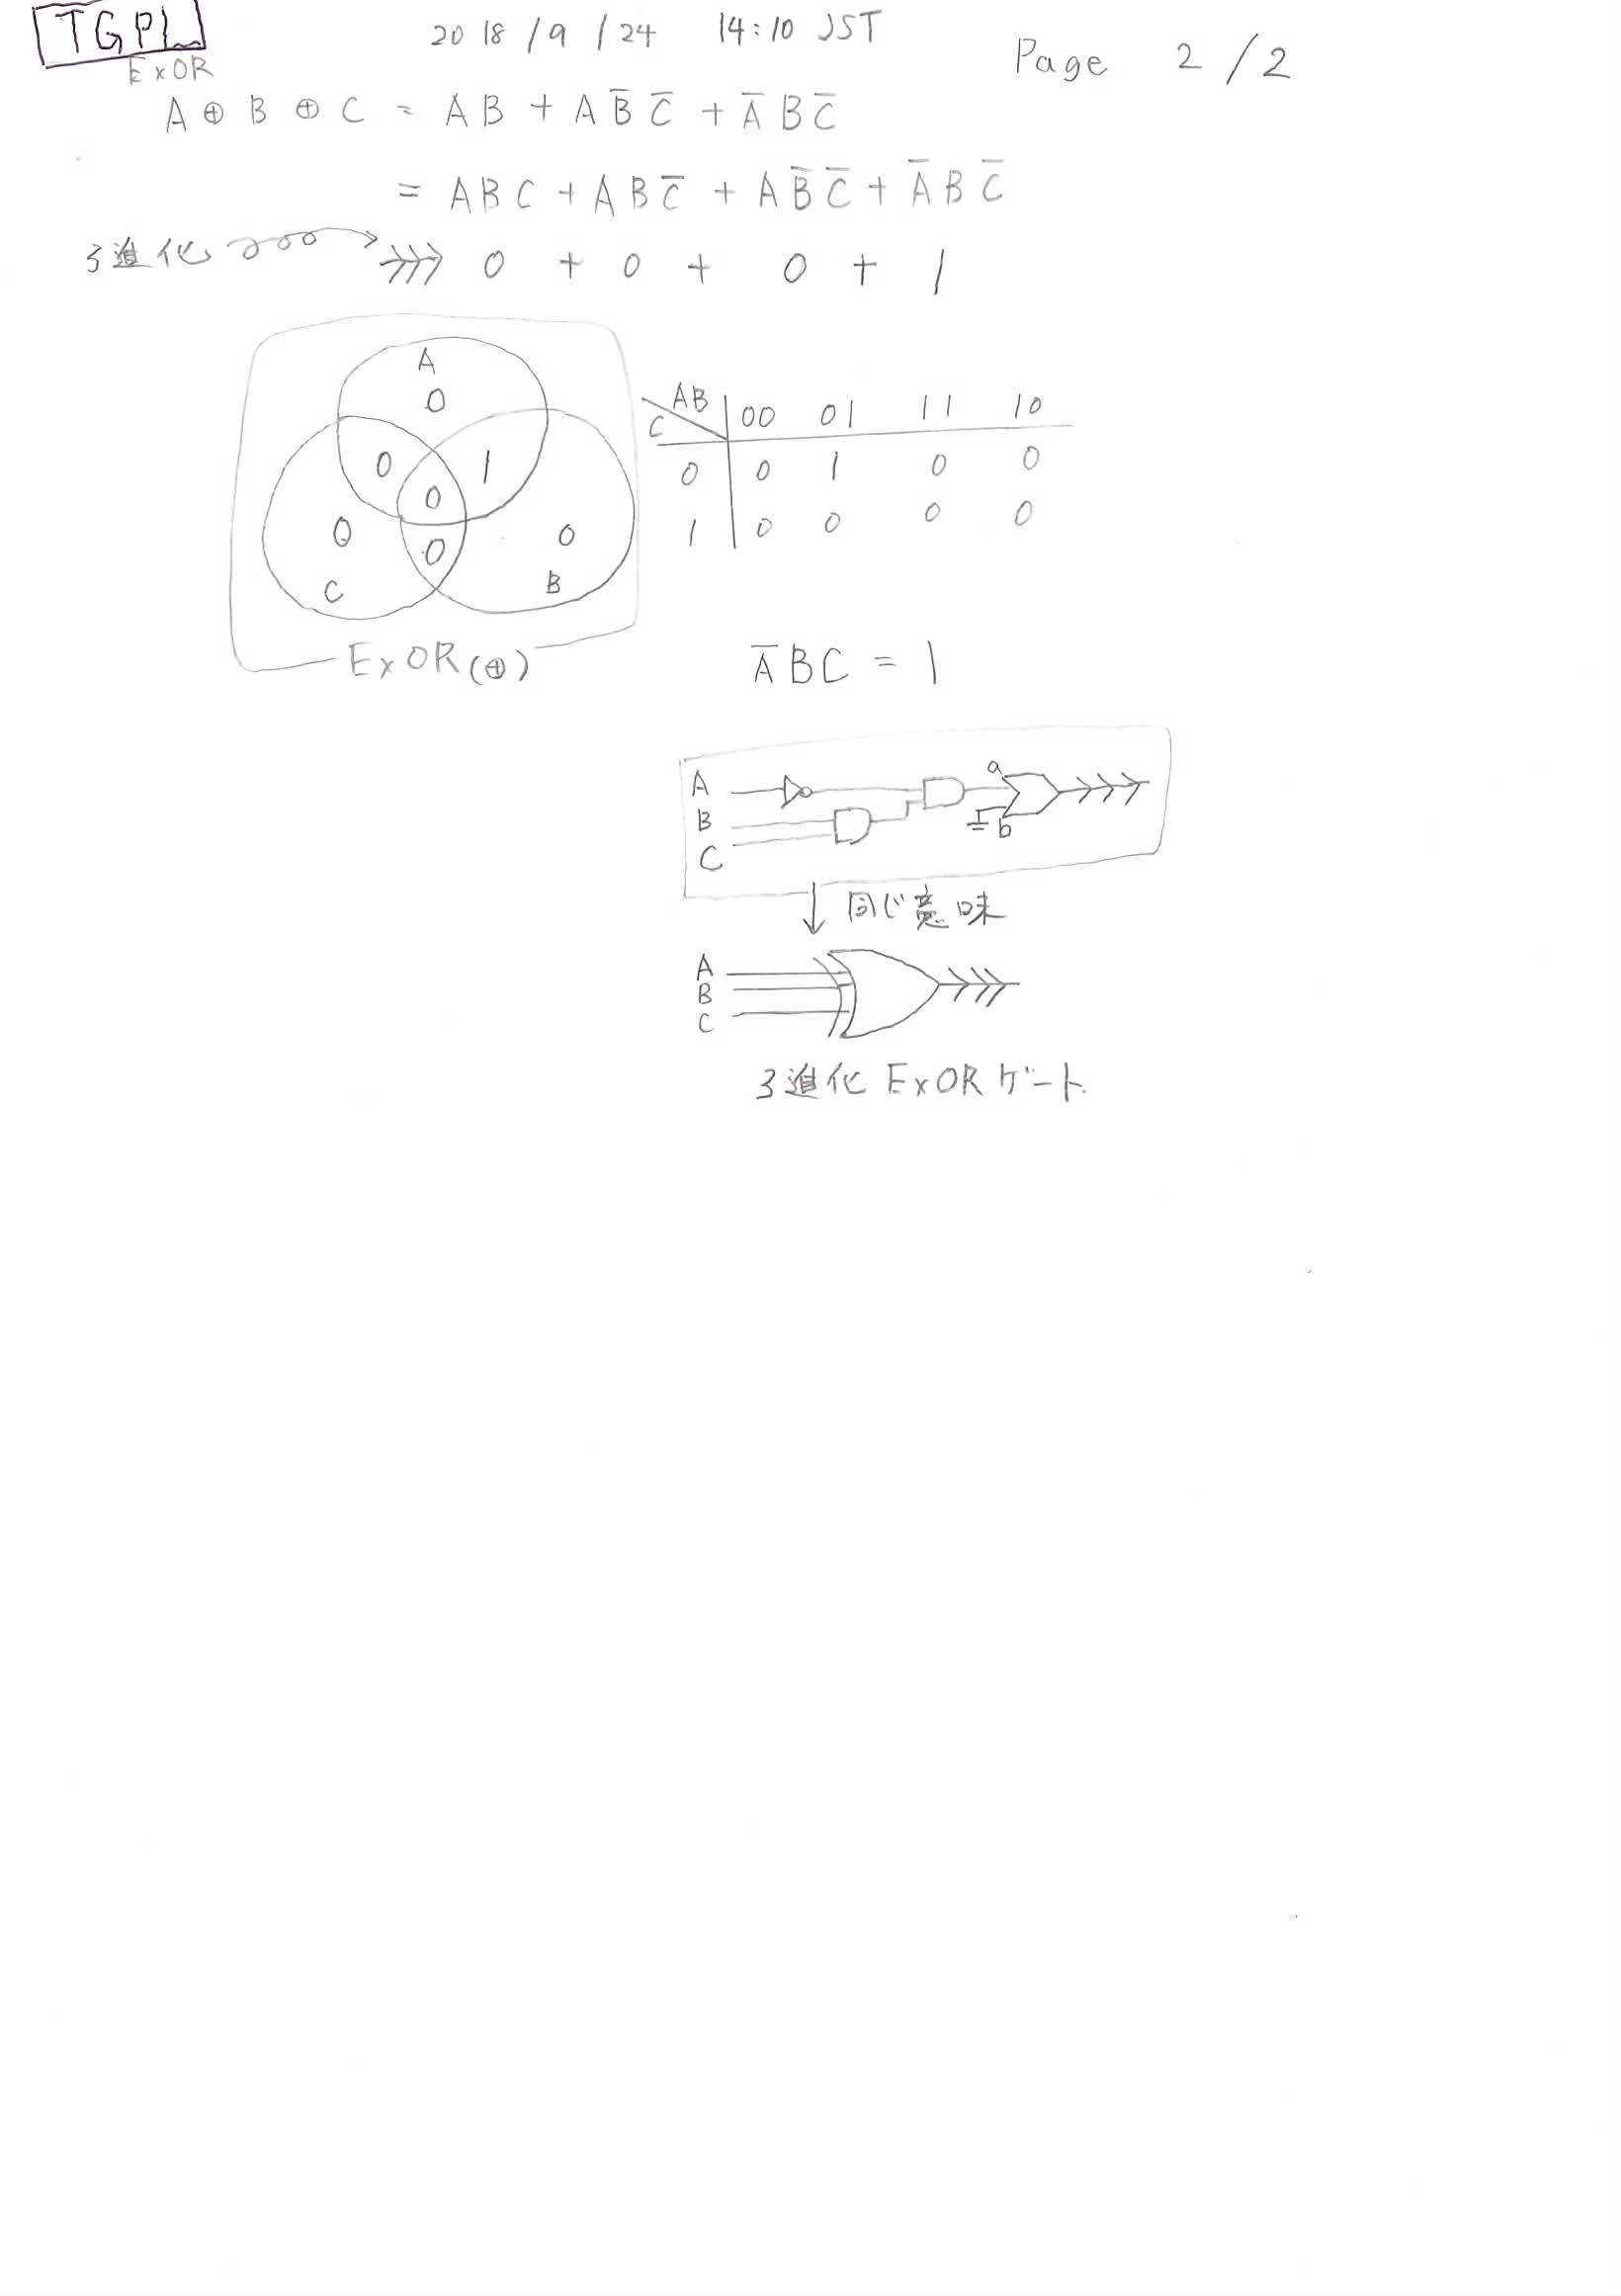 TGPL 2018/9/24 14:10 JST Page 2/2
ExOR
A ⊕ B ⊕ C = AB + AB̅C̅ + A̅BC̅
= ABC + ABC̅ + AB̅C̅ + A̅BC̅
3進化 0 + 0 + 0 + 1
A
0
0 1
0
0 0 0
C B
ExOR(⊕)
AB 00 01 11 10
C
0 0 1 0 0
1 0 0 0 0
A̅BC = 1
A a
B b
C
同じ意味
A
B
C
3進化 ExORゲート